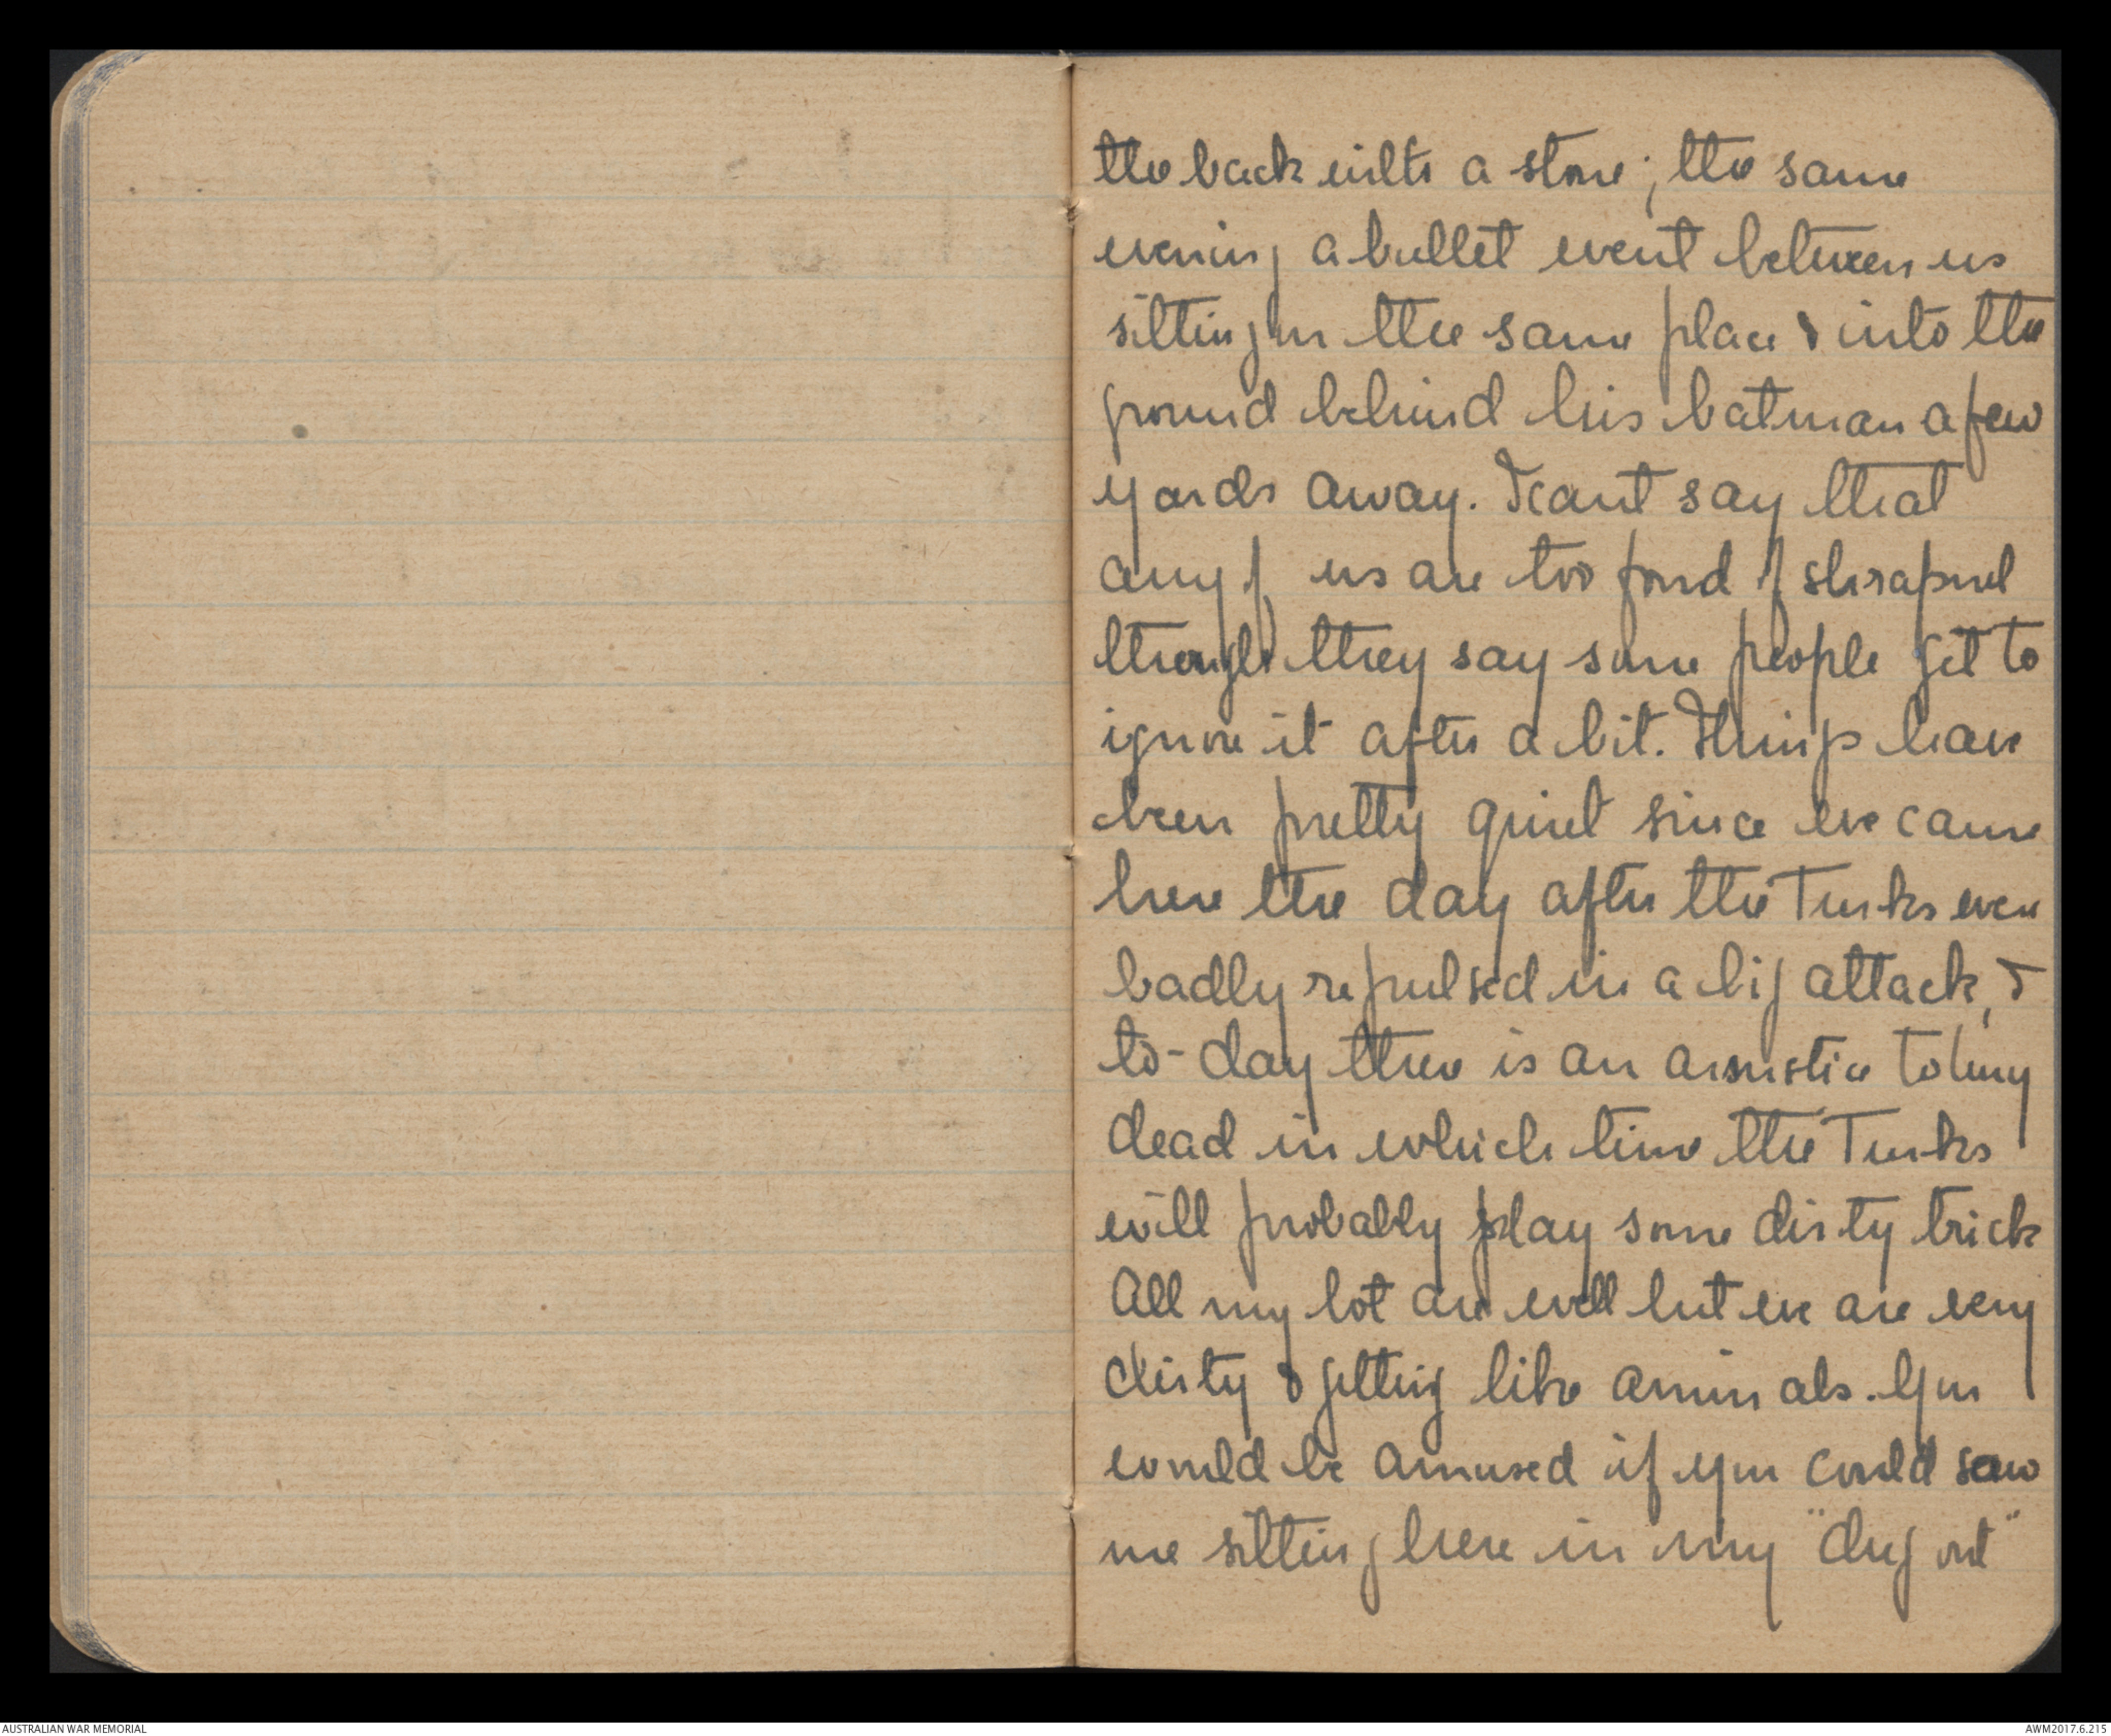 the back with a stone; the same
evening a bullet went between us
sitting in the same place & into the
ground behind his batman a few
yards away. I cant say that
any of us are too fond of shrapnel
though they say some people get to
ignore it after a bit. Things have
been pretty quiet since we came
here the day after the Turks were
badly repulsed in a big attack, &
to-day there is an armistice to bury
dead in which time the Turks
will probably play some dirty trick
All my lot are well but we are very
dirty & getting like animals. You
would be amused if you could saw
me sitting here in my "dug out"
AUSTRALIAN WAR MEMORIAL
AWM2017.6.215